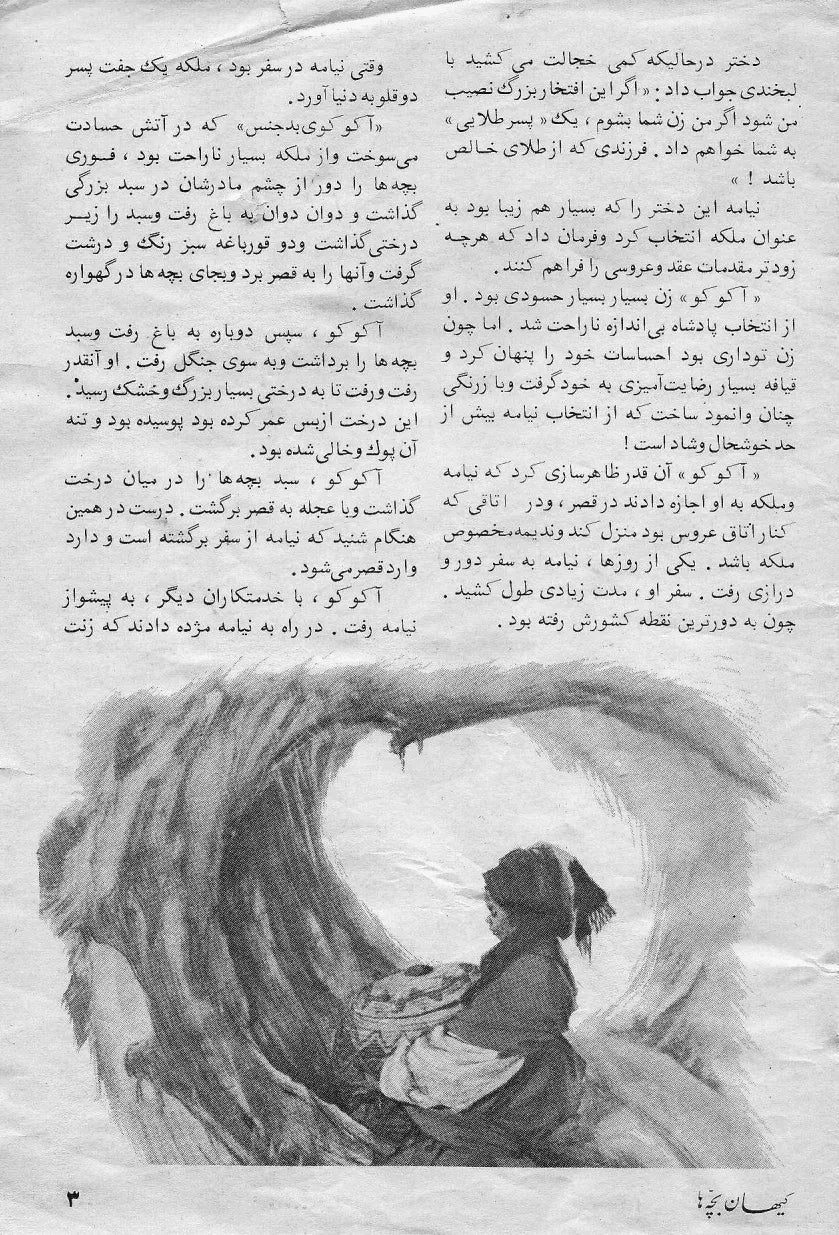 دختر درحالیکه کمی خجالت می‌کشید با
لبخندی جواب داد : «اگر این افتخار بزرگ نصیب
من شود اگر من زن شما بشوم ، یک «پسر طلایی»
به شما خواهم داد . فرزندی که از طلای خالص
باشد ! »
نیامه این دختر را که بسیار هم زیبا بود به
عنوان ملکه انتخاب کرد وفرمان داد که هرچه
زودتر مقدمات عقد وعروسی را فراهم کنند .
« آکوکو» زن بسیار بسیار حسودی بود . او
از انتخاب پادشاه بی‌اندازه ناراحت شد . اما چون
زن توداری بود احساسات خود را پنهان کرد و
قیافه بسیار رضایت‌آمیزی به خود گرفت وبا زرنگی
چنان وانمود ساخت که از انتخاب نیامه بیش از
حد خوشحال وشاد است !
« آکوکو» آن قدر ظاهرسازی کرد که نیامه
وملکه به او اجازه دادند در قصر ، ودر اتاقی که
کنار اتاق عروس بود منزل کند وندیمه مخصوص
ملکه باشد . یکی از روزها ، نیامه به سفر دور و
درازی رفت . سفر او ، مدت زیادی طول کشید .
چون به دورترین نقطه کشورش رفته بود .
وقتی نیامه در سفر بود ، ملکه یک جفت پسر
دوقلو به دنیا آورد .
«آکوکوی بدجنس» که در آتش حسادت
می‌سوخت واز ملکه بسیار ناراحت بود ، فوری
بچه‌ها را دور از چشم مادرشان در سبد بزرگی
گذاشت و دوان دوان به باغ رفت وسبد را زیر
درختی گذاشت ودو قورباغه سبز رنگ و درشت
گرفت وآنها را به قصر برد وبجای بچه‌ها در گهواره
گذاشت .
آکوکو ، سپس دوباره به باغ رفت وسبد
بچه‌ها را برداشت وبه سوی جنگل رفت . او آنقدر
رفت ورفت تا به درختی بسیار بزرگ وخشک رسید .
این درخت از بس عمر کرده بود پوسیده بود و تنه
آن پوک وخالی شده بود .
آکوکو ، سبد بچه‌ها را در میان درخت
گذاشت وبا عجله به قصر برگشت . درست در همین
هنگام شنید که نیامه از سفر برگشته است و دارد
وارد قصر می‌شود .
آکوکو ، با خدمتکاران دیگر ، به پیشواز
نیامه رفت . در راه به نیامه مژده دادند که زنت
کیهان بچّه‌ها
۳